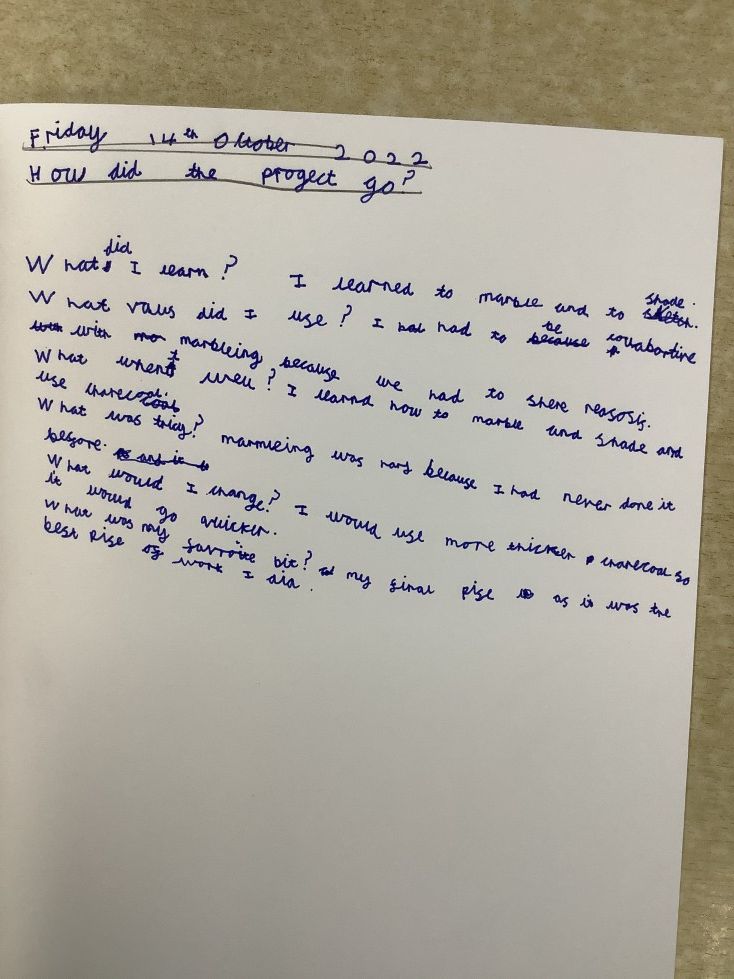 Friday 14th Oktober 2022
How did the progect go?
What did I learn? I learned to marble and to shade.
What vaus did I use? I had to be collabartine
with marbleing because we had to shere reasosis.
What whent well? I learnd how to marble and shade and
use charecoal.
What was tricy? marmleing was hard because I had never done it
before.
What would I change? I would use more thicker charecoal so
it would go quicker.
What was my favroite bit? my final pise as it was the
best pise of work I did.